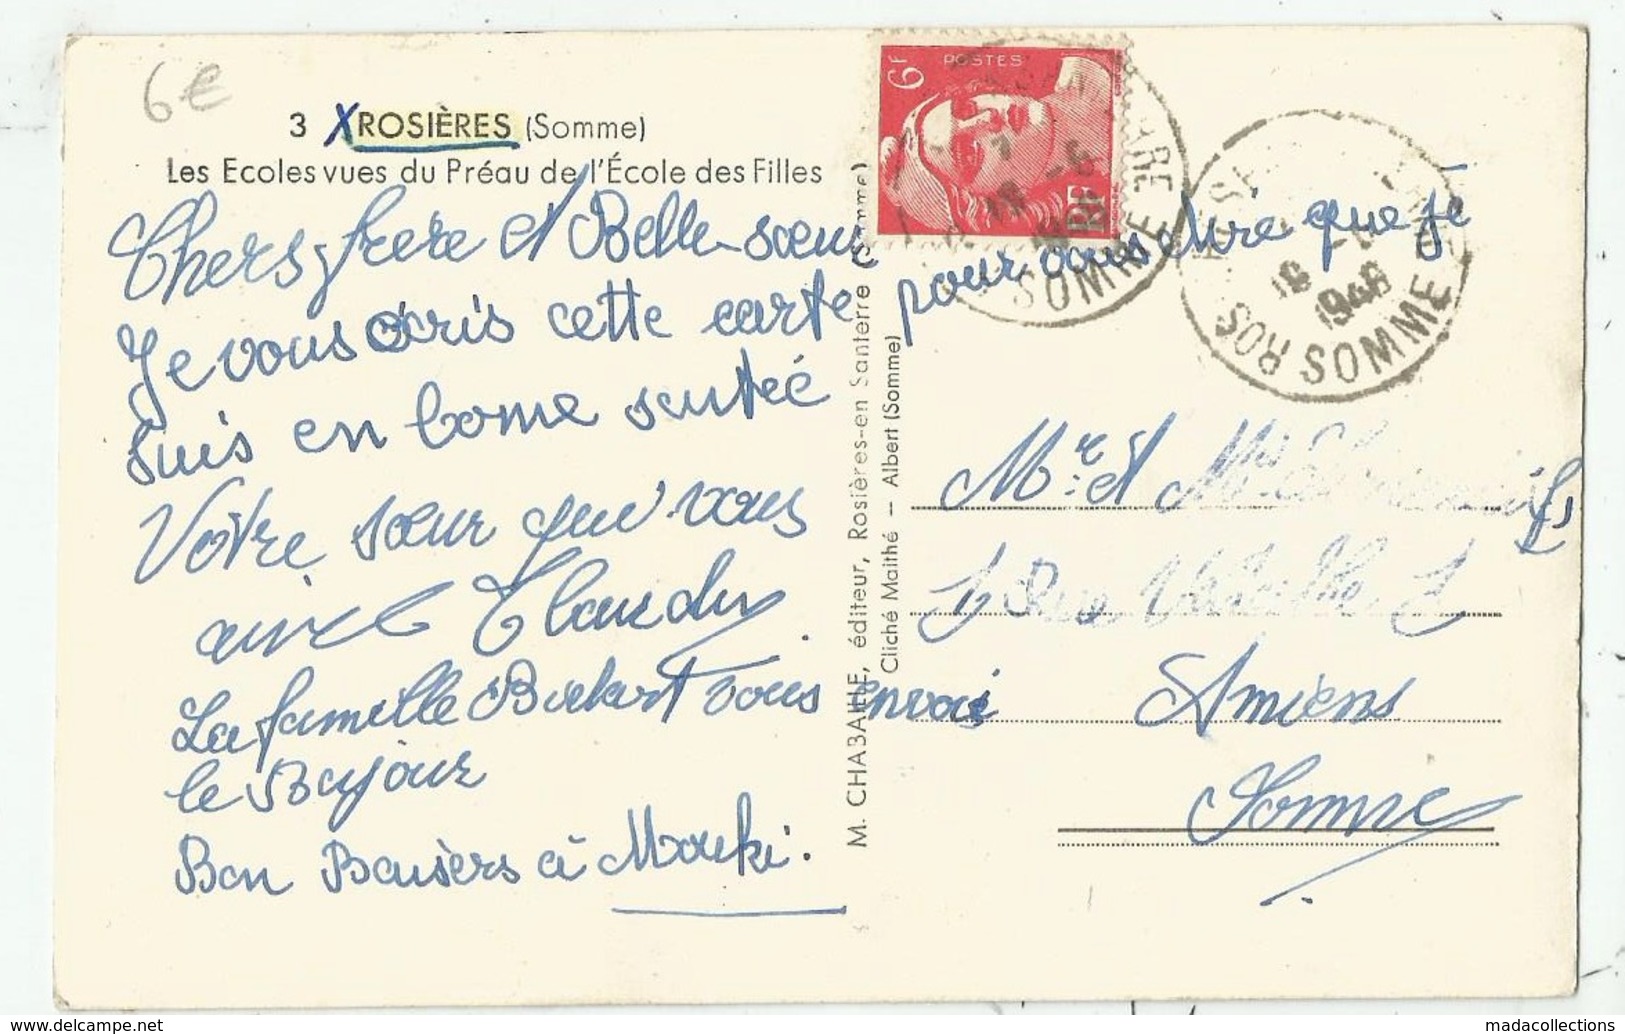 6€
3 XROSIÈRES (Somme)
Les Ecoles vues du Préau de l'École des Filles
Chers frere et Belle-sœur
Je vous écris cette carte pour vous dire que je
suis en bonne sentéé
Votre sœur que vous
La famille vous envoi
le Bojour
Bon Baisers à Mouki.
M. CHABAILLE, éditeur, Rosières-en Santerre (Somme)
Cliché Maithé — Albert (Somme)
6F
POSTES
RF
GARE
SOMME
18
1946
ROS SOMME
Mr et
Rue
Amiens
Somme
madacollections
www.delcampe.net